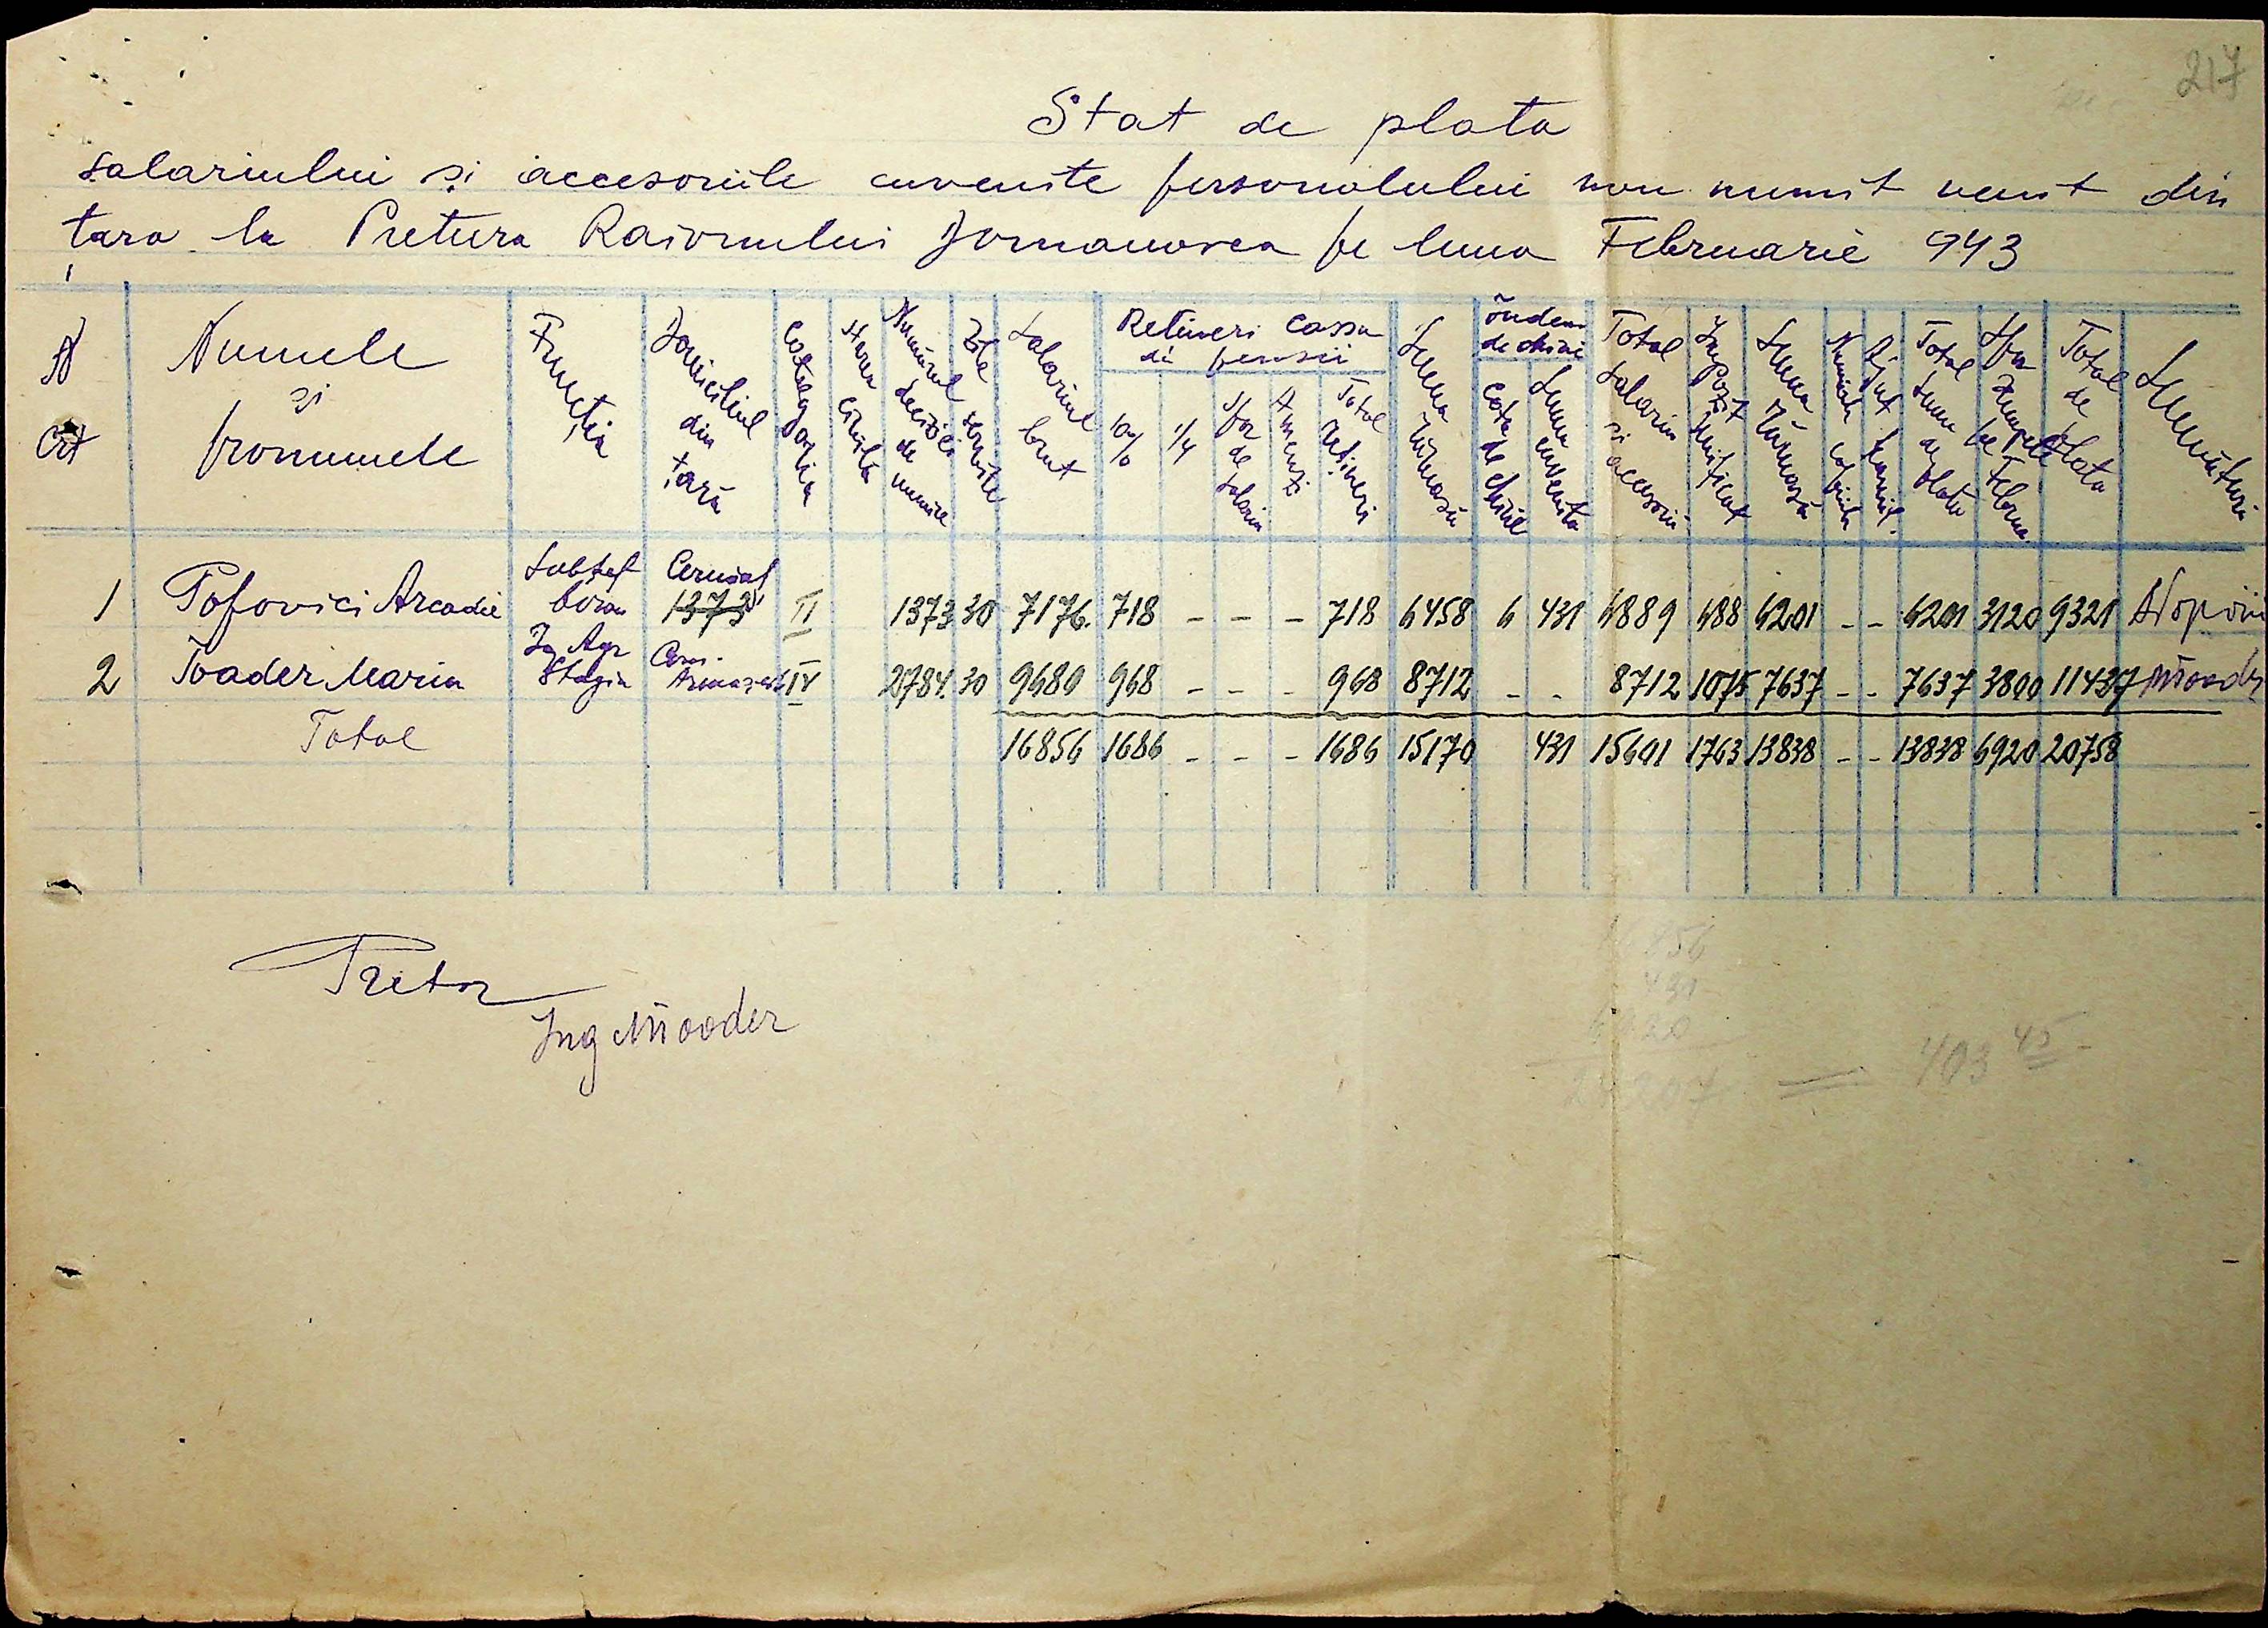 217
Stat de plata
salariului și accesoriile cuvenite personalului nou numit venit din
țara la Pretura Raionului Domanovca pe luna Februarie 943
N Crt | Numele și pronumele | Funcția | Domiciliul din țară | Categoria | Starea civilă | Numărul deciziei de numire | Zile servite | Salariul brut | Retineri Cassa di pensii | Suma rămasă | Indem de chirie | Total salariu si accesorii | Impozit Unificat | Suma Rămasă | Număr copii | Ajut famil. | Total suma de plată | Total de plata | Semnătura
10% | 1/4 | Spor de salariu | Amenzi | Total Rețineri | Cota de chirie | Suma cuvenita
1 Popovici Arcadie Subșef birou Cernăuț 1373 II 1373 30 7176. 718 - - - 718 6458 6 431 6889 688 6201 - - 6201 3120 9321
2 Toader Maria Ing Agr Stagia IV 2784. 30 9680 968 - - - 968 8712 - - 8712 1075 7637 - - 7637 3800 11437 MToader
Total 16856 1686 - - - 1686 15170 431 15601 1763 13838 - - 13838 6920 20758
Pretor
Ing MToader
16856
431
6920
24207 = 403 45 -